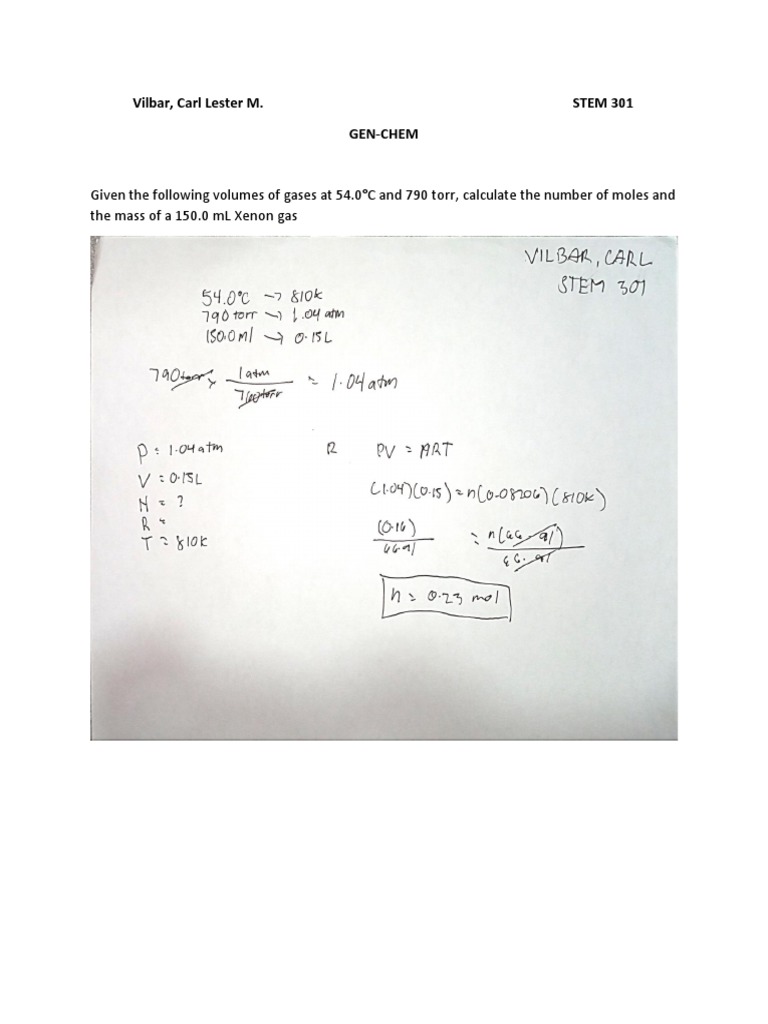 Vilbar, Carl Lester M. STEM 301
GEN-CHEM
Given the following volumes of gases at 54.0°C and 790 torr, calculate the number of moles and
the mass of a 150.0 mL Xenon gas
VILBAR, CARL
STEM 301
54.0°C → 810k
790 torr → 1.04 atm
150.0 ml → 0.15L
790 torr × 1 atm / 760 torr = 1.04 atm
P = 1.04 atm
V = 0.15L
N = ?
R =
T = 810k
R PV = nRT
(1.04)(0.15) = n(0.08206)(810k)
(0.16) / 66.91 = n(66.91) / 66.91
n = 0.23 mol